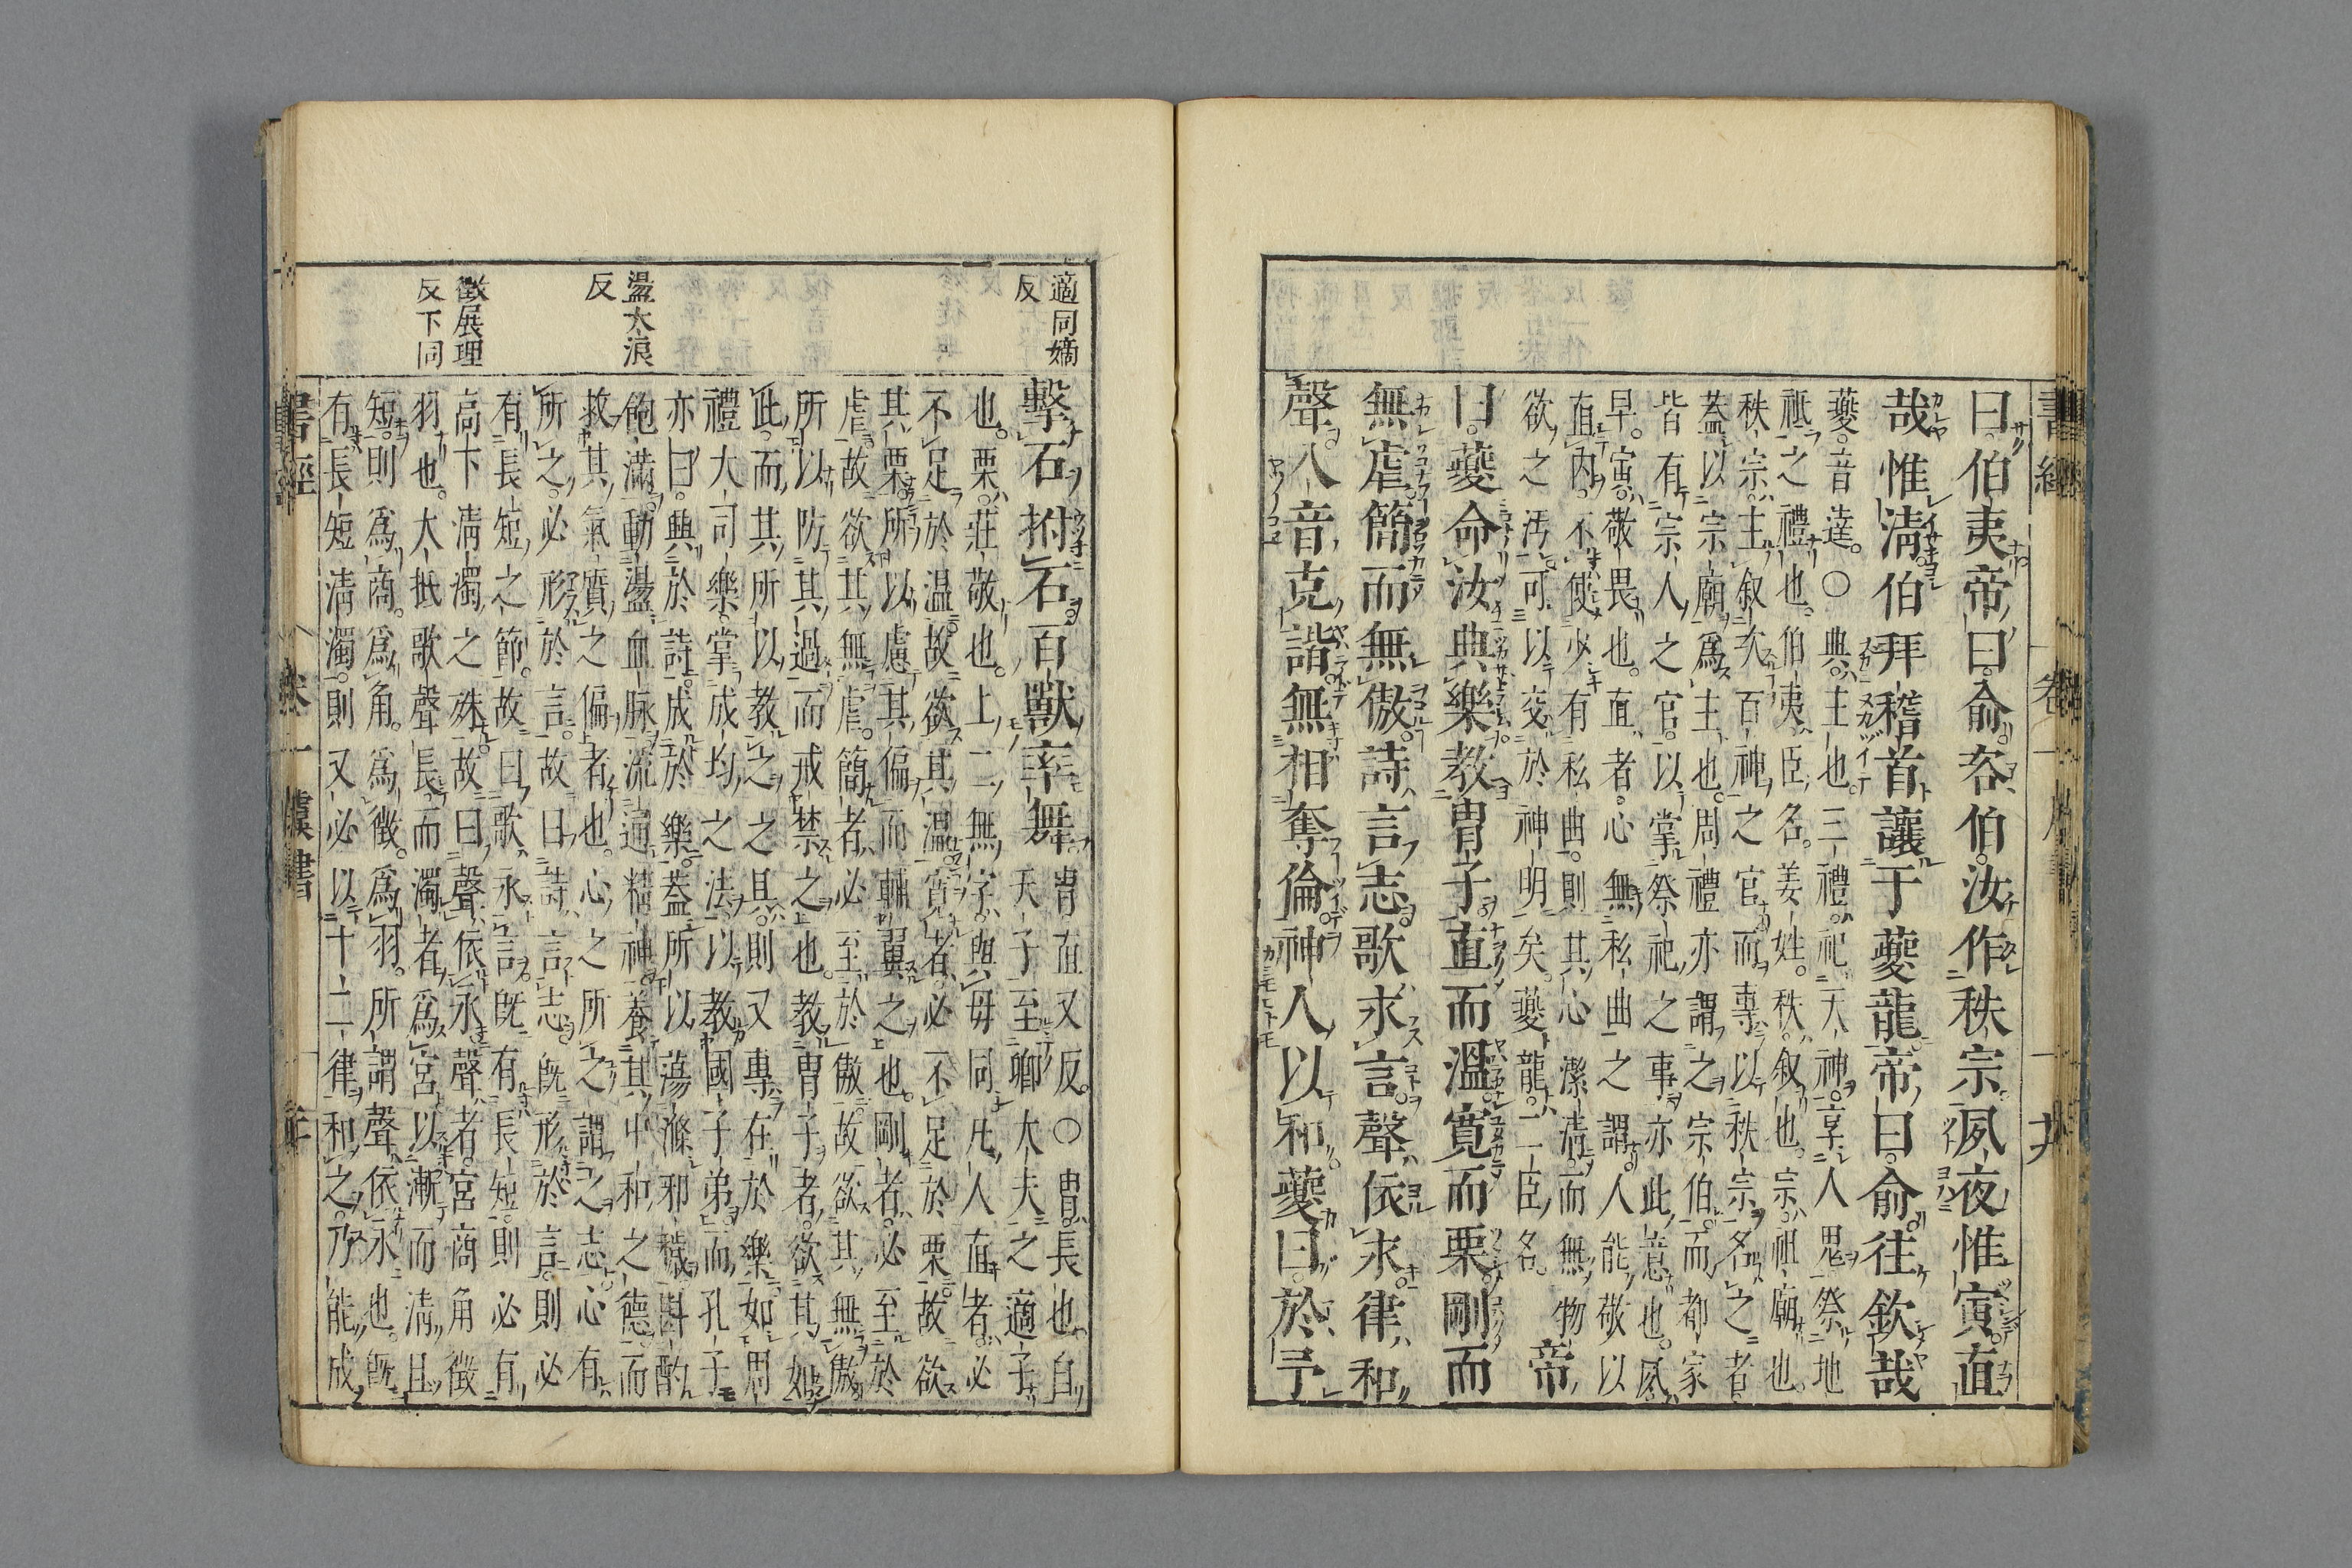 曰伯夷帝曰俞咨伯汝作秩宗夙夜惟寅直
哉惟淸伯拜稽首讓于夔龍帝曰俞往欽哉
夔音逵○典主也三禮祀天神享人鬼祭地
祗之禮也伯夷臣名姜姓秩叙也宗祖廟也
秩宗主叙次百神之官而專以秩宗名之者
蓋以宗廟爲主也周禮亦謂之宗伯而都家
皆有宗人之官以掌祭祀之事亦此意也夙
早寅敬畏也直者心無私曲之謂人能敬以
直內不使少有私曲則其心潔淸而無物
欲之汚可以交於神明矣夔龍二臣名帝
曰夔命汝典樂教冑子直而溫寬而栗剛而
無虐簡而無傲詩言志歌永言聲依永律和
聲八音克諧無相奪倫神人以和夔曰於予
適同嫡
反
盪大浪
反
徵展理
反下同
擊石拊石百獸率舞冑直又反○冑長也自
天子至卿大夫之適子
也栗莊敬也上二無字與毋同凡人直者必
不足於温故欲其温寬者必不足於栗故欲
其栗所以慮其偏而輔翼之也剛者必至於
虐故欲其無虐簡者必至於傲故欲其無傲
所以防其過而戒禁之也教冑子者欲其如
此而其所以教之之具則又專在於樂如周
禮大司樂掌成均之法以教國子弟而孔子
亦曰興於詩成於樂蓋所以蕩滌邪穢斟酌
飽滿動盪血脉流通精神養其中和之德而
救其氣質之偏者也心之所之謂之志心有
所之必形於言故曰詩言志旣形於言則必
有長短之節故曰歌永言旣有長短則必有
高下淸濁之殊故曰聲依永聲者宮商角徵
羽也大抵歌聲長而濁者爲宮以漸而淸且
短則爲商爲角爲徵爲羽所謂聲依永也旣
有長短淸濁則又必以十二律和之乃能成
書經
卷一
虞書